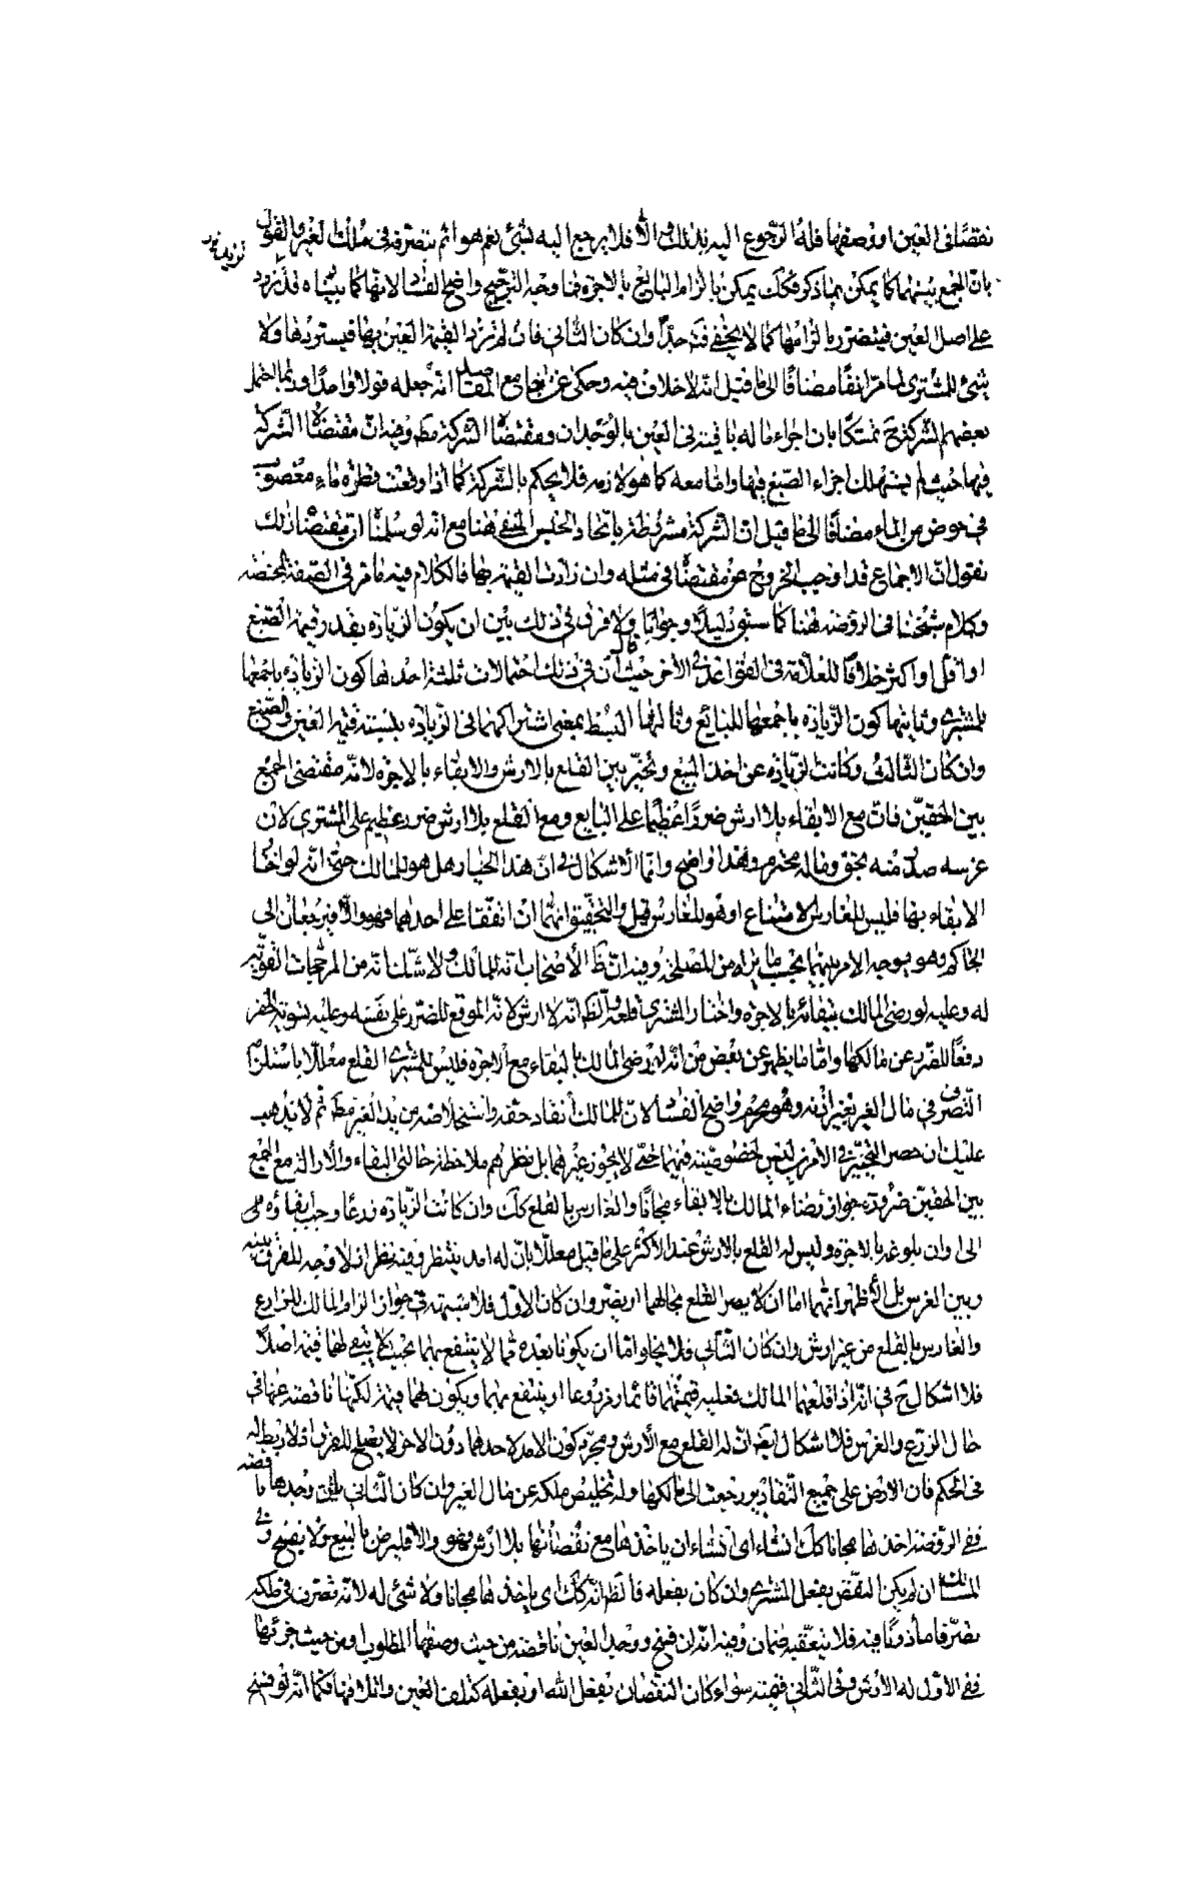 نقصًا فی العین او وصفها فله الرّجوع الیه بذلك والّا فلا یرجع الیه بشئ نعم هو اثم بتصرّفه فی ملك لغیر والقول
بانّ الجمع بینهما کما یمکن بما ذکر فکك یمکن بالزام البائع بالاجرة فما وجه الترجیح واضح الفساد لانّها کما بیّناه قد تزید
علی اصل العین فیتضرّر بالزامها کما لا یخفی فتد جدّاً وان کان الثانی فان لم تزد القیمة العین بها فیستردّها ولا
شئ للمشتری لما مرّ انفًا مضافًا الی ما قیل انّه لا خلاف فیه وحکی عن جامع المقاصد انّه جعله قولا واحدًا وربما احتمل
بعضهم الشرکة ح تمسّکًا بان اجزاء ماله باقیة فی العین بالوجدان ومقتضاها الشرکة مط وفیه انّ مقتضاها الشرکة
فیما حیث لم یستهلك اجزاء الصّبغ فیها وامّا معه کما هو لازمه فلا یحکم بالشرکة کما اذا وقعت قطرة ماء مغصوب
فی حوض من الماء مضافًا الی ما قیل انّ الشرکة مشروطة باتّحاد الجنس المنفی هنا مع انّه لو سلّمنا انّ مقتضاها ذلك
نقول انّ الاجماع قد اوجب الخروج عن مقتضاها فی مثله وان زادت القیمة بها فالکلام فیه ما مرّ فی الصّفة المحضة
وکلام شیخنا فی الروضة هنا کما سبق دلیلًا وجوابًا ولا فرق فی ذلك بین ان یکون الزّیادة بقدر قیمة الصّبغ
او اقلّ او اکثر خلافًا للعلّامة فی القواعد فی الاخر حیث قال انّ فی ذلك احتمالات ثلثة احدها کون الزیادة باجمعها
للمشتری وثانیها کون الزّیادة باجمعها للبائع وثالثها البسط بمعنی اشتراکهما فی الزیادة بنسبة قیمة العین والصّبغ
وان کان الثالث وکانت الزّیادة عن اخذ المبیع وتخیّر بین القلع بالارش والابقاء بالاجرة لانّه مقتضی الجمع
بین الحقیّن فانّ مع الابقاء بلا ارش ضررًا عظیمًا علی البایع ومع القلع بلا ارش ضرر عظیم علی المشتری لانّ
غرسه صدر منه بحق وماله محترم وهذا واضح وانّما الاشکال فی انّ هذا الخیار هل هو للمالك حتی انّه لو اختار
الابقاء بها فلیس للغارس الامتناع او هو للغارس قیل والتحقیق انهما ان اتّفقا علی احدهما فهو والّا فیرجعان الی
الحاکم وهو یوجه الامر بینهما بحسب ما یراه من المصلحة وفیه انّ ظ الأصحاب انّه للمالك ولا شكّ انّه من المرجّحات القویّة
له وعلیه لو رضی المالك ببقائه بالاجرة واختار المشتری قلعه فالظ انّه لا ارش لانّه الموقع للضّرر علی نفسه وعلیه تسویة الحفر
دفعًا للضّرر عن مالکها وامّا ما یظهر عن بعض من انّه لو رضی المالك بالبقاء مع الاجرة فلیس للمشتری القلع معلّلًا باستلزامه
التّصرّف فی مال الغیر بغیر اذنه وهو محرّم واضح الفساد لانّ للمالك انقاذ حقّه واستخلاصه من ید الغیر مط ثم لا یذهب
علیك ان حصر التخییر فی الأمرین لیس لخصوصیّة فیهما حتّی لا یجوز غیرهما بل نظرهم ملاحظة حالتی البقاء والازالة مع الجمع
بین الحقیّن ضرورة جواز رضاء المالك بالابقاء مجانًا والغارس بالقلع کك وان کانت الزّیادة زرعًا وجب ابقاؤه علی
الی اوان بلوغه بالاجرة ولیس له القلع بالارش عند الأکثر علی ما قیل معلّلًا بانّ له امد ینتظر وفیه نظر اذ لا وجه للفرق بینه
وبین الغرس بل الأظهر انّهما امّا ان لا یضر القلع بحالهما او یضرّ وان کان الاوّل فلا شبهة فی جواز الزام المالك للزارع
والغارس بالقلع من غیر ارش وان کان الثّانی فلا یخلو امّا ان یکونا بعده ممّا لا ینتفع بهما بحیث لا یبقی لهما قیمة اصلًا
فلا اشکال ح فی انّه اذا قلعهما المالك فعلیه قیمتهما قائمًا ومزروعًا او ینتفع بهما ویکون لهما قیمة لکنّها ناقصة عنها فی
حال الزّرع والغرس فلا اشکال ایضًا انّ له القلع مع الأرش ومجرّد کون الامد لاحدهما دون الاخر لا یصلح للفرق اذ لا ربط له
فی الحکم فان الارض علی جمیع التّقادیر رجعت الی مالکها وله تخلیص ملکه عن مال الغیر وان کان الثّانی بان وجدها ناقصة
ففی الروضة اخذها مجانًا کك انشاء ای انشاء ان یاخذها مع نقصانها بلا ارش فهو والّا فلیرض بالبیع ولا یفسخ وفی
المسالك ان لم یکن النقص بفعل المشتری وان کان بفعله فالظ انّه کك ای یاخذها مجانًا ولا شئ له لانّه تصرّف فی ملکه
تصرّفا ماذونًا فیه فلا یتعقّبه ضمان وفیه انّه ان فسخ ووجد العین ناقصة من حیث وصفها المطلوب او من حیث جزئها
ففی الاوّل له الارش وفی الثّانی قیمته سواء کان النقصان بفعل الله او بفعله کتلف العین واتلافها فکما انّه لو فسخ